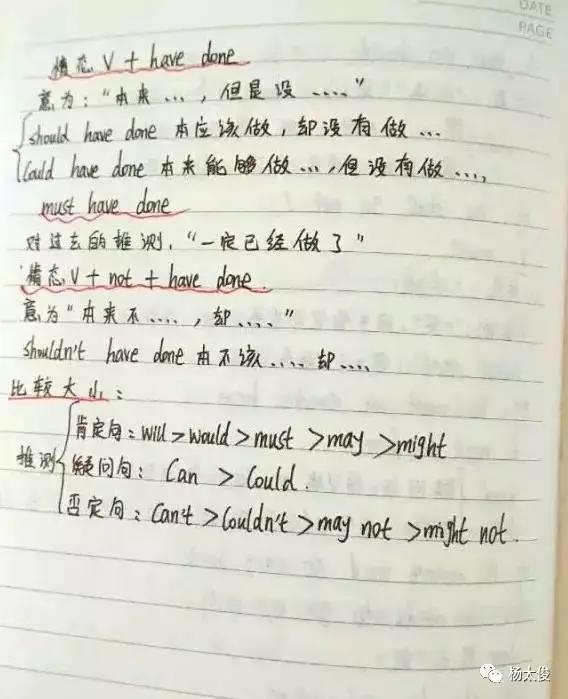 DATE
PAGE
情态 V + have done
意为："本来 ...，但是没 ...."
should have done 本应该做，却没有做 ...
Could have done 本来能够做 ...，但没有做 ....
must have done
对过去的推测，"一定已经做了"
情态 V + not + have done.
意为"本来不 ....，却 ...."
shouldn't have done 本不该 .... 却 ....
比较大小：
推测
肯定句：will > would > must > may > might
疑问句：Can > Could.
否定句：Can't > Couldn't > may not > might not.
杨太俊